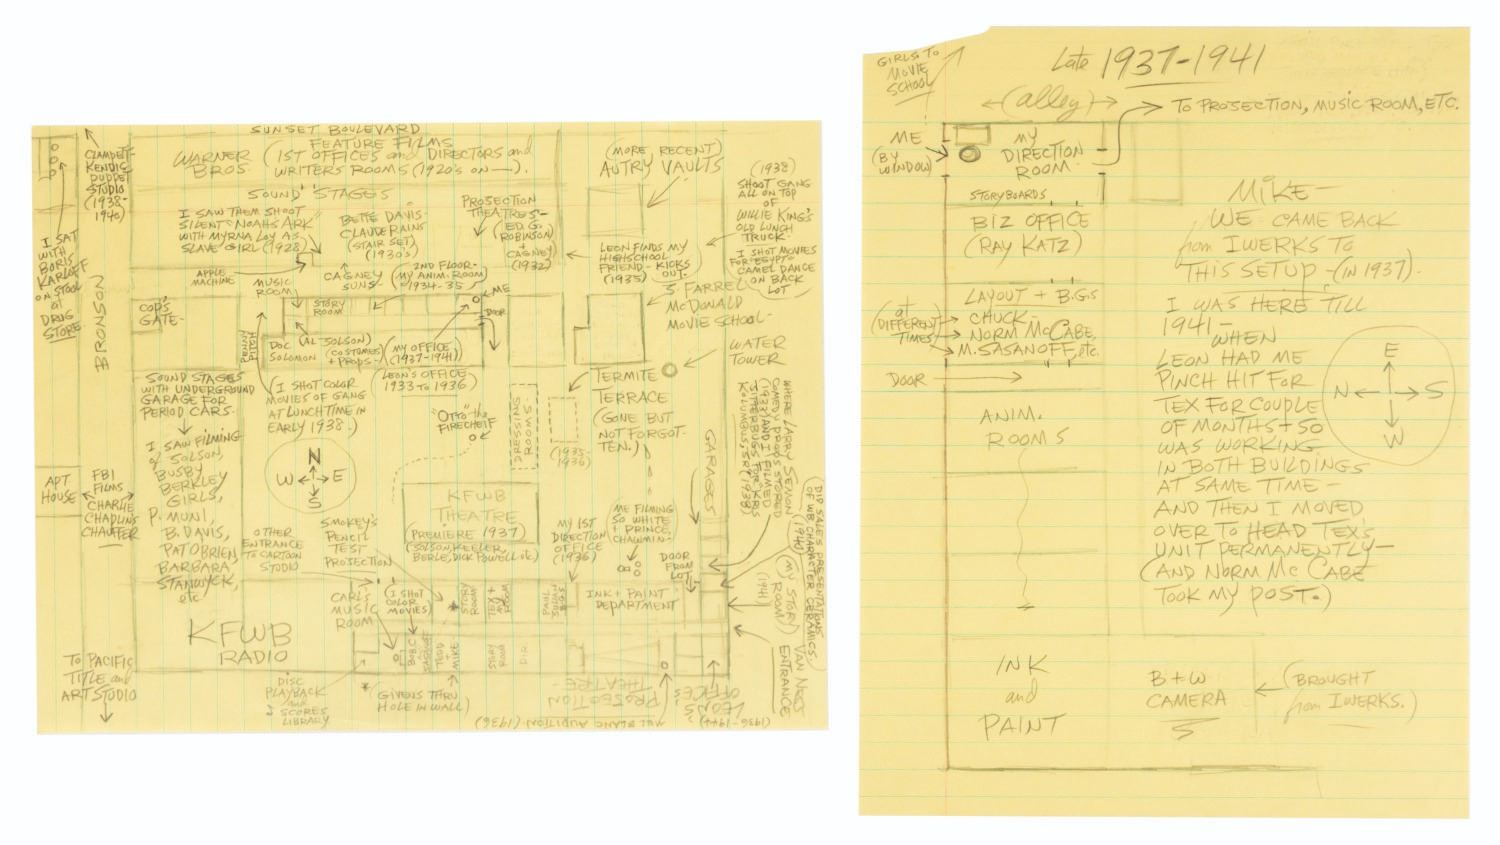 SUNSET BOULEVARD
WARNER BROS.
FEATURE FILMS
(1ST OFFICES and DIRECTORS and
WRITERS ROOMS (1920's ON——).
(MORE RECENT)
AUTRY VAULTS
CLAMPETT-
KENDIS
PUPPET
STUDIO
(1938-
1940)
I SAT
WITH
BORIS
KARLOFF
ON STOOL
at
DRUG
STORE.
BRONSON
SOUND STAGES
I SAW THEM SHOOT
SILENT "NOAHS ARK"
WITH MYRNA LOY AS
SLAVE GIRL (1928)
BETTE DAVIS-
CLAUDE RAINS
(STAIR SET)
(1930's)
PROJECTION
THEATRES-
(ED. G.
ROBINSON)
+
CAGNEY
(1932)
(1938)
SHOOT GANG
ALL ON TOP
OF
WILLIE KING'S
OLD LUNCH
TRUCK-
I SHOT MOVIES
FOR EGYPT-
CAMEL DANCE
ON BACK
LOT
LEON FINDS MY
HIGHSCHOOL
FRIEND - KICKS
(1935) OUT.
APPLE
MACHINE
MUSIC
ROOM
CAGNEY
SUNS
2ND FLOOR-
(MY ANIM. ROOM)
1934-35
ME
DOOR
COP'S
GATE-
STORY
ROOM
PENNY
PITCH
DOC
SOLOMON
(AL-SOLSON)
(COSTUMES
+ PROPS-)
(MY OFFICE
(1937-1941))
(LEON'S OFFICE
1933 TO 1936)
J. FARREL
McDONALD
MOVIE SCHOOL-
WATER
TOWER
SOUND STAGES
WITH UNDERGROUND
GARAGE FOR
PERIOD CARS.
(I SHOT COLOR
MOVIES OF GANG
AT LUNCHTIME IN
EARLY 1938.)
"OTTO" the
FIRECHEIF
DRESSING
ROOMS-
(1935-
1936)
TERMITE
TERRACE
(GONE BUT
NOT FORGOT-
TEN.)
WHERE LARRY SEMON
COMEDY PROPS STORED
(1937) AND I FILMED
GARAGES
I SAW FILMING
of SOLSON,
BUSBY
BERKLEY
GIRLS,
P. MUNI,
B. DAVIS,
PAT O'BRIEN,
BARBARA
STANWYCK,
etc.
N
W E
S
APT
HOUSE
FBI
FILMS
CHARLIE
CHAPLIN'S
CHAUFFER
OTHER
ENTRANCE
TO CARTOON
STUDIO
SMOKEY'S
PENCIL
TEST
PROJECTION
KFWB
THEATRE
(PREMIERE 1937)
(SOLSON, KEELER,
BERLE, DICK POWELL etc)
MY 1ST
DIRECTION
OFFICE
(1936)
ME FILMING
SO WHITE
+ PRINCE
CHAWMIN-
DOOR
FROM
LOT
(DID SALES PRESENTATIONS
OF WB CHARACTER CERAMICS.
(1940)
(MY STORY
ROOM)
(1941)
VAN NESS
ENTRANCE
CARL'S
MUSIC
ROOM
(I SHOT
COLOR
MOVIES)
STORY
ROOM
INK + PAINT
DEPARTMENT
KFWB
RADIO
BOB. C
TODD +
MIKE
STORY
ROOM
DIR.
TO PACIFIC
TITLE and
ART STUDIO
DISC
PLAYBACK
and
SCORES
LIBRARY
*(GIVENS THRU
HOLE IN WALL)
PROJECTION
THEATRE-
MEL BLANC AUDITION (1936)
LEON'S
OFFICES
(1936-1944)
GIRLS TO
MOVIE
SCHOOL
Late 1937-1941
(alley)
TO PROJECTION, MUSIC ROOM, ETC.
ME
(BY
WINDOW)
MY
DIRECTION
ROOM
STORYBOARDS
BIZ OFFICE
(RAY KATZ)
LAYOUT + B.G.S
at
(DIFFERENT
TIMES)
CHUCK-
NORM McCABE,
M. SASANOFF, etc.
DOOR
ANIM.
ROOMS
MIKE-
WE CAME BACK
from IWERKS TO
THIS SETUP - (IN 1937).
I WAS HERE TILL
1941 -
WHEN
LEON HAD ME
PINCH HIT FOR
TEX FOR COUPLE
OF MONTHS + SO
WAS WORKING
IN BOTH BUILDINGS
AT SAME TIME -
AND THEN I MOVED
OVER TO HEAD TEX'S
UNIT PERMANENTLY-
(AND NORM McCABE
TOOK MY POST.)
E
N S
W
INK
and
PAINT
B+W
CAMERA
(BROUGHT
from IWERKS.)